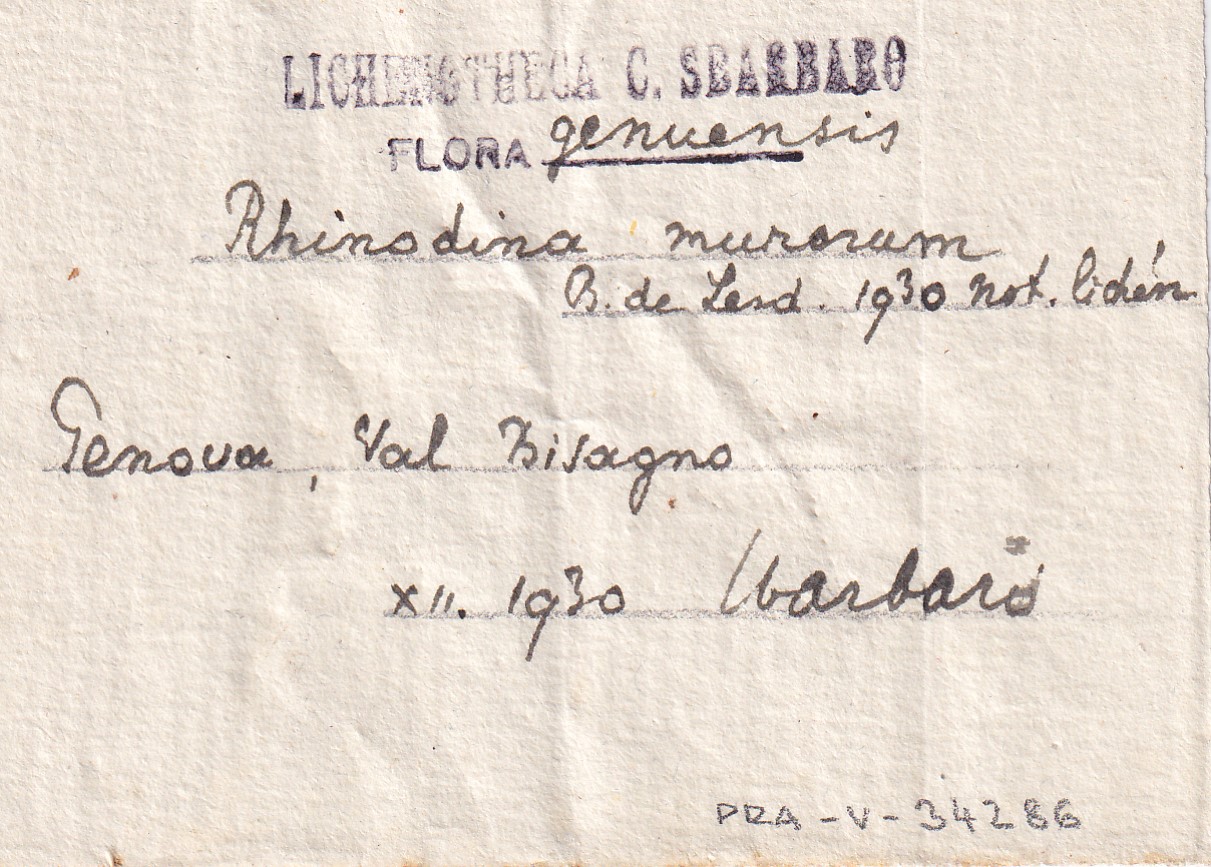 LICHENOTHECA C. SBARBARO
FLORA genuensis
Rhinodina murorum
B. de Lesd. 1930 not. lichén
Genova, Val Bisagno
XII. 1930 Sbarbaro
PRA-V-34286